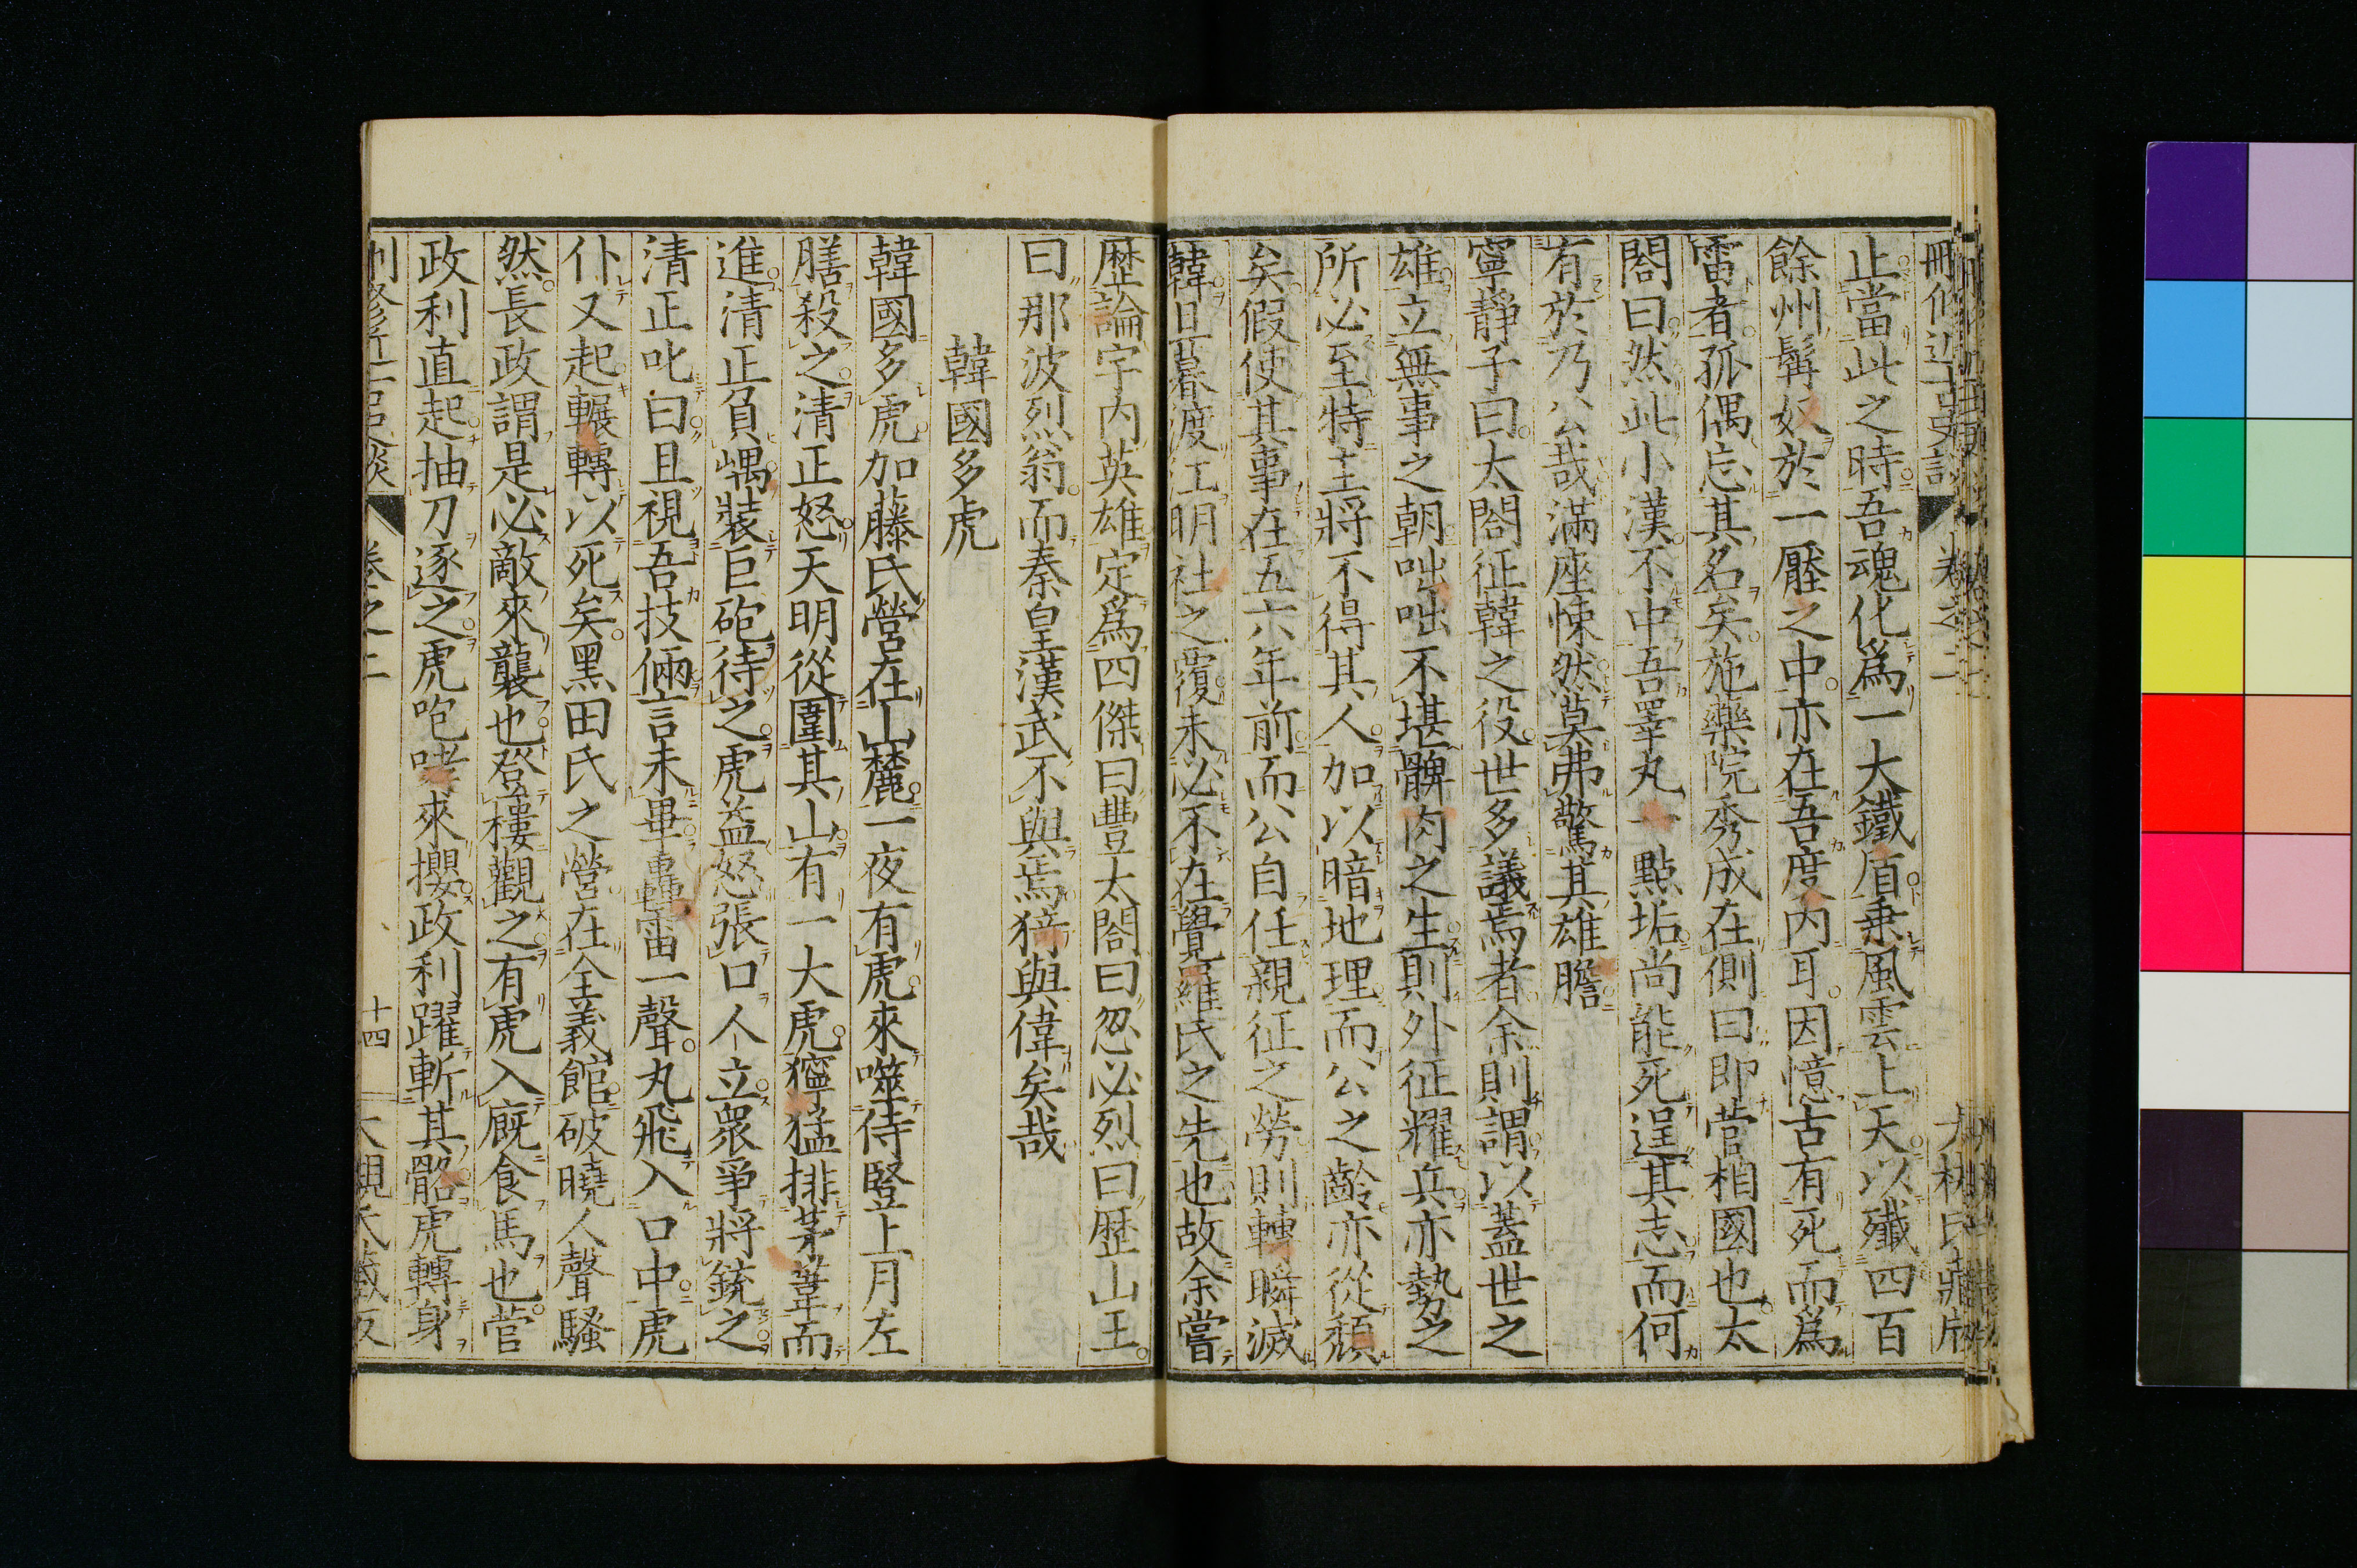 止當此之時吾魂化爲一大鐵盾乗風雲上天以殲四百
餘州髯奴於一壓之中亦在吾度内耳因憶古有死而爲
雷者孤偶忘其名矣施藥院秀成在側曰即菅相國也太
閤曰然此小漢不中吾睪丸一點垢尚能死逞其志而何
有於乃公哉滿座悚然莫弗驚其雄膽
寧靜子曰太閤征韓之役世多議焉者余則謂以蓋世之
雄立無事之朝咄咄不堪髀肉之生則外征耀兵亦勢之
所必至特主將不得其人加以暗地理而公之齡亦從頽
矣假使其事在五六年前而公自任親征之勞則轉瞬滅
韓旦暮渡江明社之覆未必不在覺羅氏之先也故余嘗
歴論宇内英雄定爲四傑曰豐太閤曰忽必烈曰歴山王
曰那波烈翁而秦皇漢武不與焉猗與偉矣哉
韓國多虎
韓國多虎加藤氏營在山麓一夜有虎來噬侍豎上月左
膳殺之清正怒天明從圍其山有一大虎獰猛排茅葦而
進清正負嵎裝巨砲待之虎益怒張口人立衆爭將銃之
清正叱曰且視吾技倆言未畢轟雷一聲丸飛入口中虎
仆又起輾轉以死矣黑田氏之營在全義館破曉人聲騷
然長政謂是必敵來襲也登樓觀之有虎入廐食馬也菅
政利直起抽刀逐之虎咆哮來攖政利躍斬其髂虎轉身
卷之二
十四